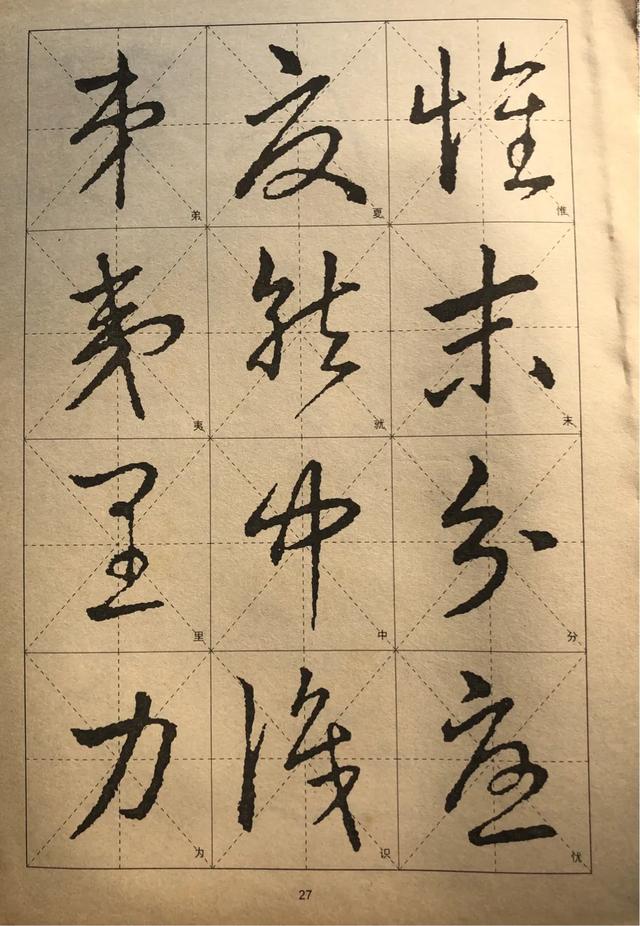 惟末分忧
惟
末
分
忧
夏就中识
夏
就
中
识
弟夷里为
弟
夷
里
为
27